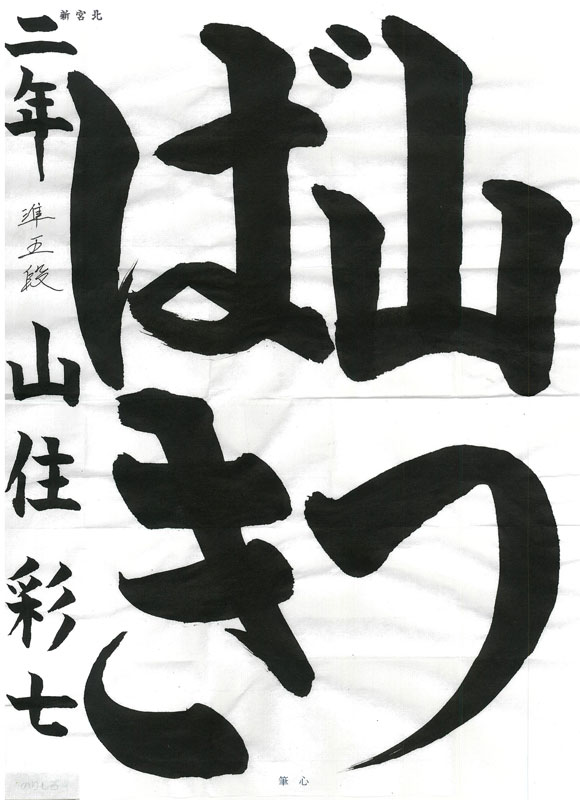 山つ
ばき
新宮北
二年 準五段 山住彩七
筆心
のりしろ